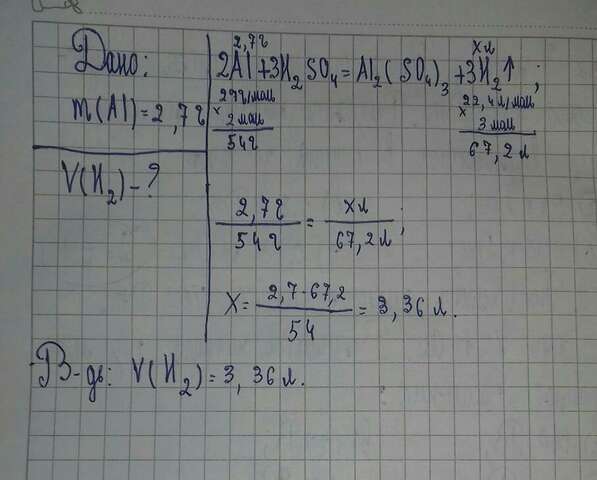 Дано:
m(Al)=2,7г
V(H₂)-?
2,7г хл
2Al+3H₂SO₄=Al₂(SO₄)₃+3H₂↑;
27г/моль 22,4л/моль
x 2 моль x 3 моль
54г 67,2 л
2,7г / 54г = хл / 67,2л;
X= 2,7·67,2 / 54 = 3,36 л.
В-дь: V(H₂)=3,36л.